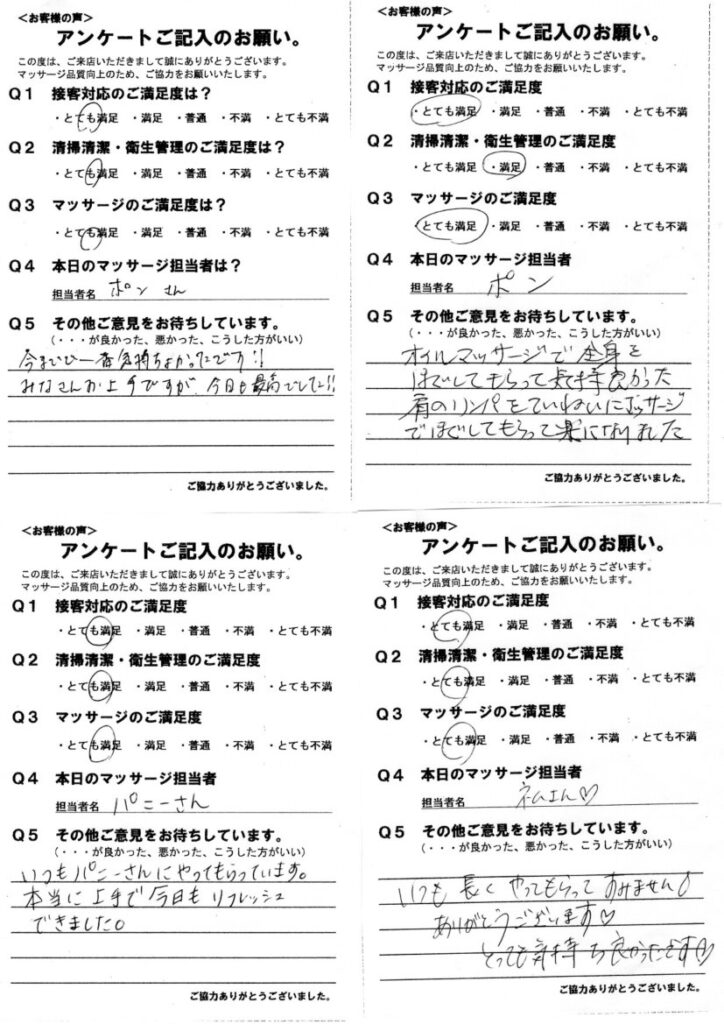 <お客様の声>
アンケートご記入のお願い。
この度は、ご来店いただきまして誠にありがとうございます。
マッサージ品質向上のため、ご協力をお願いいたします。
Q1 接客対応のご満足度は？
・とても満足 ・満足 ・普通 ・不満 ・とても不満
Q2 清掃清潔・衛生管理のご満足度は？
・とても満足 ・満足 ・普通 ・不満 ・とても不満
Q3 マッサージのご満足度は？
・とても満足 ・満足 ・普通 ・不満 ・とても不満
Q4 本日のマッサージ担当者は？
担当者名 ポン さん
Q5 その他ご意見をお待ちしています。
（・・・が良かった、悪かった、こうした方がいい）
今までで一番気持ちよかったです!!
みなさんお上手ですが、今日も最高でした!!
ご協力ありがとうございました。
<お客様の声>
アンケートご記入のお願い。
この度は、ご来店いただきまして誠にありがとうございます。
マッサージ品質向上のため、ご協力をお願いいたします。
Q1 接客対応のご満足度
・とても満足 ・満足 ・普通 ・不満 ・とても不満
Q2 清掃清潔・衛生管理のご満足度
・とても満足 ・満足 ・普通 ・不満 ・とても不満
Q3 マッサージのご満足度
・とても満足 ・満足 ・普通 ・不満 ・とても不満
Q4 本日のマッサージ担当者
担当者名 ポン
Q5 その他ご意見をお待ちしています。
（・・・が良かった、悪かった、こうした方がいい）
オイルマッサージで全身を
ほぐしてもらって気持良かった
肩のリンパをていねいにマッサージ
でほぐしてもらって楽になりました
ご協力ありがとうございました。
<お客様の声>
アンケートご記入のお願い。
この度は、ご来店いただきまして誠にありがとうございます。
マッサージ品質向上のため、ご協力をお願いいたします。
Q1 接客対応のご満足度
・とても満足 ・満足 ・普通 ・不満 ・とても不満
Q2 清掃清潔・衛生管理のご満足度
・とても満足 ・満足 ・普通 ・不満 ・とても不満
Q3 マッサージのご満足度
・とても満足 ・満足 ・普通 ・不満 ・とても不満
Q4 本日のマッサージ担当者
担当者名 パニーさん
Q5 その他ご意見をお待ちしています。
（・・・が良かった、悪かった、こうした方がいい）
いつもパニーさんにやってもらっています。
本当に上手で今日もリフレッシュ
できました。
ご協力ありがとうございました。
<お客様の声>
アンケートご記入のお願い。
この度は、ご来店いただきまして誠にありがとうございます。
マッサージ品質向上のため、ご協力をお願いいたします。
Q1 接客対応のご満足度
・とても満足 ・満足 ・普通 ・不満 ・とても不満
Q2 清掃清潔・衛生管理のご満足度
・とても満足 ・満足 ・普通 ・不満 ・とても不満
Q3 マッサージのご満足度
・とても満足 ・満足 ・普通 ・不満 ・とても不満
Q4 本日のマッサージ担当者
担当者名 ネムさん♡
Q5 その他ご意見をお待ちしています。
（・・・が良かった、悪かった、こうした方がいい）
いつも長くやってもらってすみません
ありがとうございます♡
とっても気持ち良かったです♡
ご協力ありがとうございました。